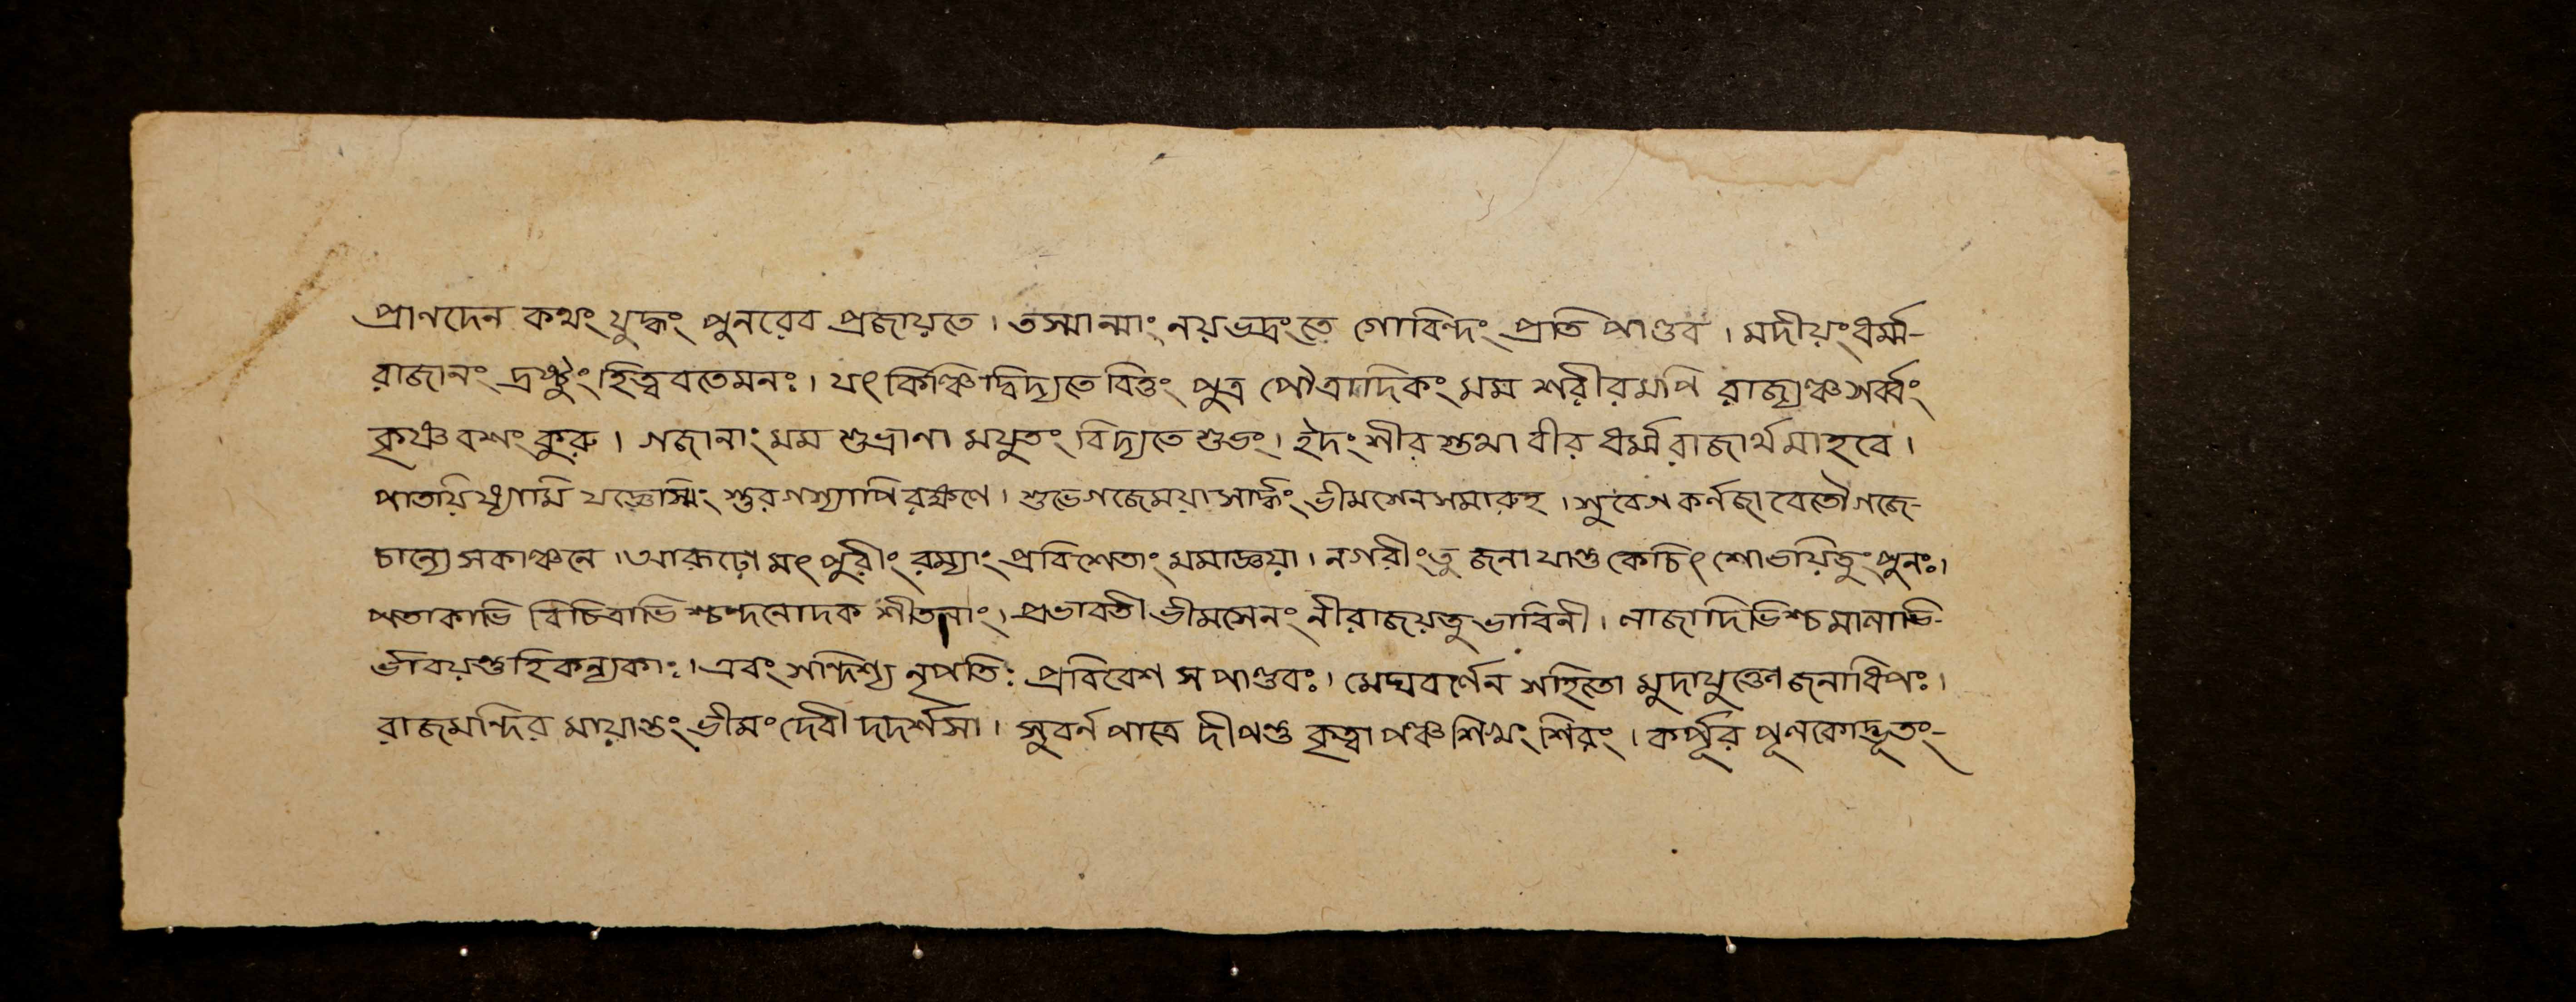 প্রাণদেন কথং যুদ্ধং পুনরেব প্রজায়তে । তস্মান্মাং নয়ভদ্রংতে গোবিন্দং প্রতি পাণ্ডব । মদীয়ংধর্ম্ম-
রাজানং দ্রষ্টুং হিত্বরতেমনঃ । যৎ কিঞ্চিদ্বিদ্যতে বিত্তং পুত্র পৌত্রাদিকং মম শরীরমপি রাজ্যঞ্চসর্ব্বং
কৃষ্ণবশং কুরু । গজানাং মম শুভ্রাণা মযুতং বিদ্যতে শুভং । ইদং শীর স্তথা বীর ধর্ম্মরাজার্থমাহবে ।
পাতয়িষ্যামি যজ্ঞেস্মিং স্তুরগস্যাপিরক্ষণে । শুভেগজেময়াসার্দ্ধং ভীমসেনসমারুহ । সুবেগ কর্নজা বেতৌগজে-
চান্যেসকাঞ্চনে । আরূঢ়ো মৎপুরীং রম্যাং প্রবিশেতাং মমাজ্ঞয়া । নগরীংতু জনা যান্তু কেচিৎ শোভয়িতুং পুনঃ ।
পতাকাভি র্বিচিত্রাভি শ্চন্দনোদক শীতলাং । প্রভাবতী ভীমসেনং নীরাজয়তু ভাবিনী । লাজাদিভিশ্চমালাভি-
র্ভাবয়ন্তুহিকন্যকাঃ । এবং সন্দিশ্য নৃপতিঃ প্রবিবেশ স পাণ্ডবঃ । মেঘবর্ণেন সহিতো মুদাযুক্তো জনাধিপঃ ।
রাজমন্দির মায়ান্তং ভীমং দেবী দদর্শসা । সুবর্ন পাত্রে দীপন্তু কৃত্বা পঞ্চশিখং শিরং । কর্পূর পূণকোদ্ভূতং-